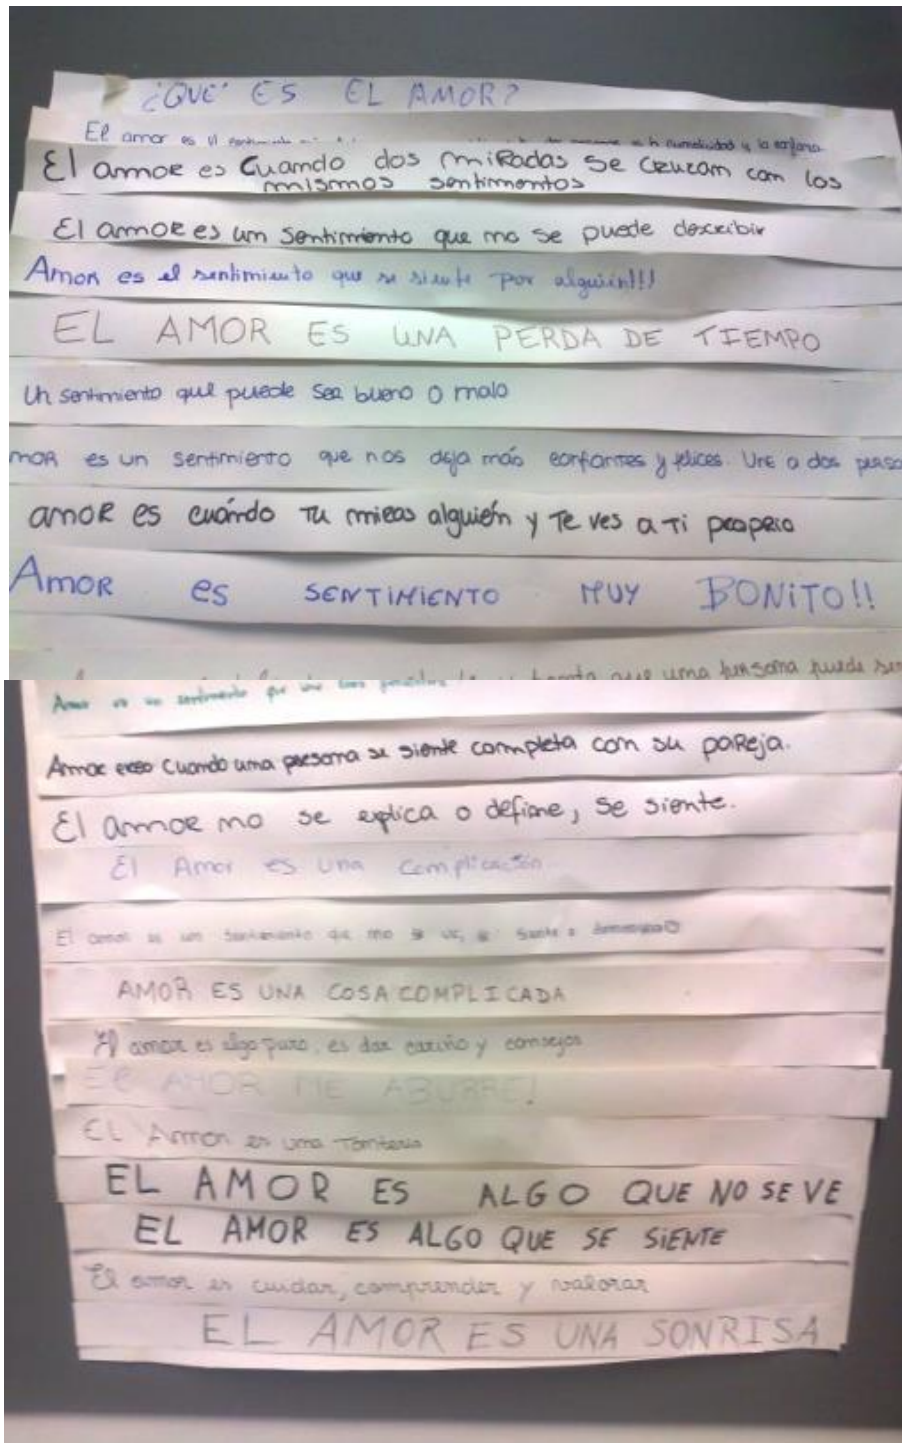 ¿QUE' ES EL AMOR?
El amor es
El amor es cuando dos miradas se cruzam com los
mismos sentimentos
El amor es um sentimiento que mo se puede describir
Amor es el sentimiento que se siente por alguién!!!
EL AMOR ES UNA PERDA DE TIEMPO
Un sentimiento que puede sea bueno o malo
mor es un sentimiento que nos deja más confiantes y felices. Une a dos perso
amor es cuándo Tu miras alguién y Te ves a Ti proprio
Amor es SENTIMIENTO MUY BONITO!!
que uma persona puede ser
Amor es un sentimiento que
Amor cuando uma persona se siente completa com su pareja.
El amor mo se explica o define, se siente.
El Amor es una complicación
El amor es um sentimento que mo se ve, se siente
AMOR ES UNA COSA COMPLICADA
El amor es algo puro, es dar cariño y consejos
El AMOR ME ABURRE!
EL Amor es uma Tonteria
EL AMOR ES ALGO QUE NO SE VE
EL AMOR ES ALGO QUE SE SIENTE
El amor es cuidar, comprender y valorar
EL AMOR ES UNA SONRISA